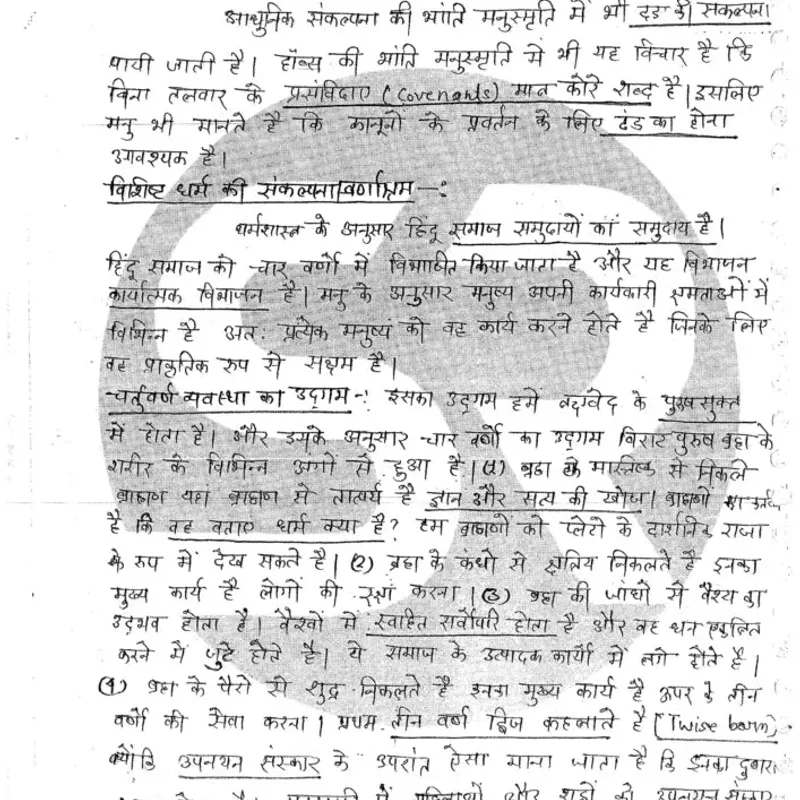 आधुनिक संकल्पना की भांति मनुस्मृति में भी दंड की संकल्पना
पायी जाती है। हॉब्स की भांति मनुस्मृति में भी यह विचार है कि
बिना तलवार के प्रसंविदाए (Covenants) मात्र कोरे शब्द है। इसलिए
मनु भी मानते है कि कानूनों के प्रवर्तन के लिए दंड का होना
आवश्यक है।
विशिष्ट धर्म की संकल्पना/वर्णाश्रम -:
धर्मशास्त्र के अनुसार हिंदू समाज समुदायों का समुदाय है।
हिंदू समाज को चार वर्णों में विभाजित किया जाता है और यह विभाजन
कार्यात्मक विभाजन है। मनु के अनुसार मनुष्य अपनी कार्यकारी क्षमताओं में
विभिन्न है अत: प्रत्येक मनुष्य को वह कार्य करने होते है जिनके लिए
वह प्राकृतिक रुप से सक्षम है।
चर्तुवर्ण व्यवस्था का उद्गम -: इसका उद्गम हमें ऋग्वेद के पुरुष सुक्त
में होता है। और उसके अनुसार चार वर्णों का उद्गम विराट पुरुष ब्रह्मा के
शरीर के विभिन्न अंगों से हुआ है। (1) ब्रह्मा के मास्तिष्क से निकले
ब्राह्मण यहां ब्राह्मण से तात्पर्य है ज्ञान और सत्य की खोज। ब्राह्मणों का कर्तव्य
है कि वह बताए धर्म क्या है? हम ब्राह्मणों को प्लेटो के दार्शनिक राजा
के रुप में देख सकते है। (2) ब्रह्मा के कंधो से क्षत्रिय निकलते है इनका
मुख्य कार्य है लोगों की रक्षा करना। (3) ब्रह्मा की जांघो से वैश्य का
उद्भव होता है। वैश्यों में स्वाहित सर्वोपरि होता है और वह धन एकत्रित
करने में जुटे होते है। ये समाज के उत्पादक कार्यो में लगे होते है।
(4) ब्रह्मा के पैरो से शुद्र निकलते है इनका मुख्य कार्य है ऊपर के तीन
वर्णों की सेवा करना। प्रथम तीन वर्ण द्विज कहलाते है (Twise born)
क्योंकि उपनयन संस्कार के उपरांत ऐसा माना जाता है कि इनका दुबारा
में महिलाओं और शूद्रों को उपनयन संस्कार